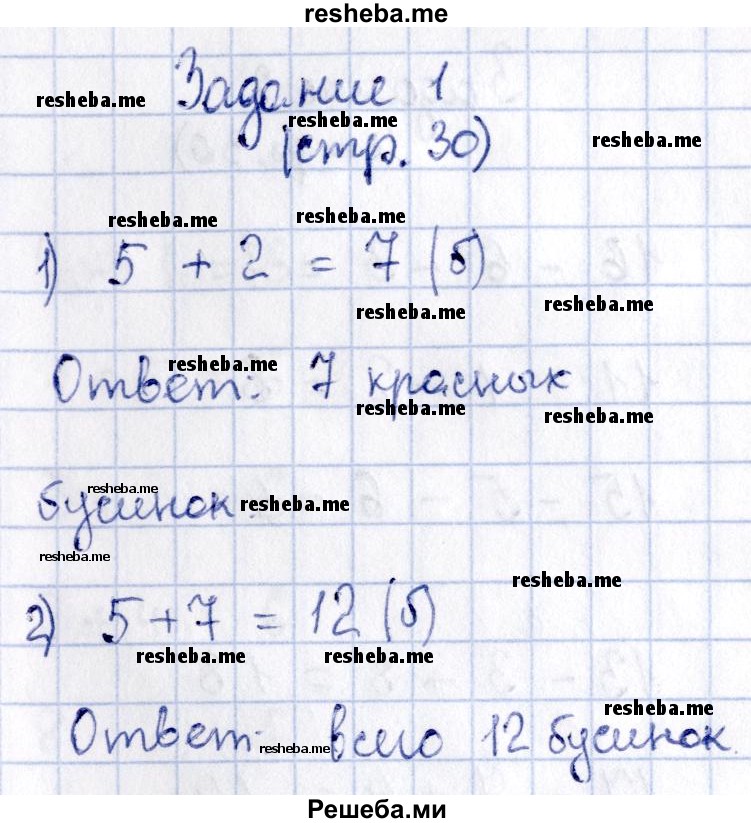 resheba.me
Задание 1
resheba.me
resheba.me
(стр. 30)
resheba.me
resheba.me
resheba.me
1) 5 + 2 = 7 (б)
resheba.me
resheba.me
resheba.me
Ответ: 7 красных
resheba.me
resheba.me
resheba.me
бусинок.
resheba.me
resheba.me
resheba.me
2) 5 + 7 = 12 (б)
resheba.me
resheba.me
resheba.me
Ответ: всего 12 бусинок.
resheba.me
Решеба.ми